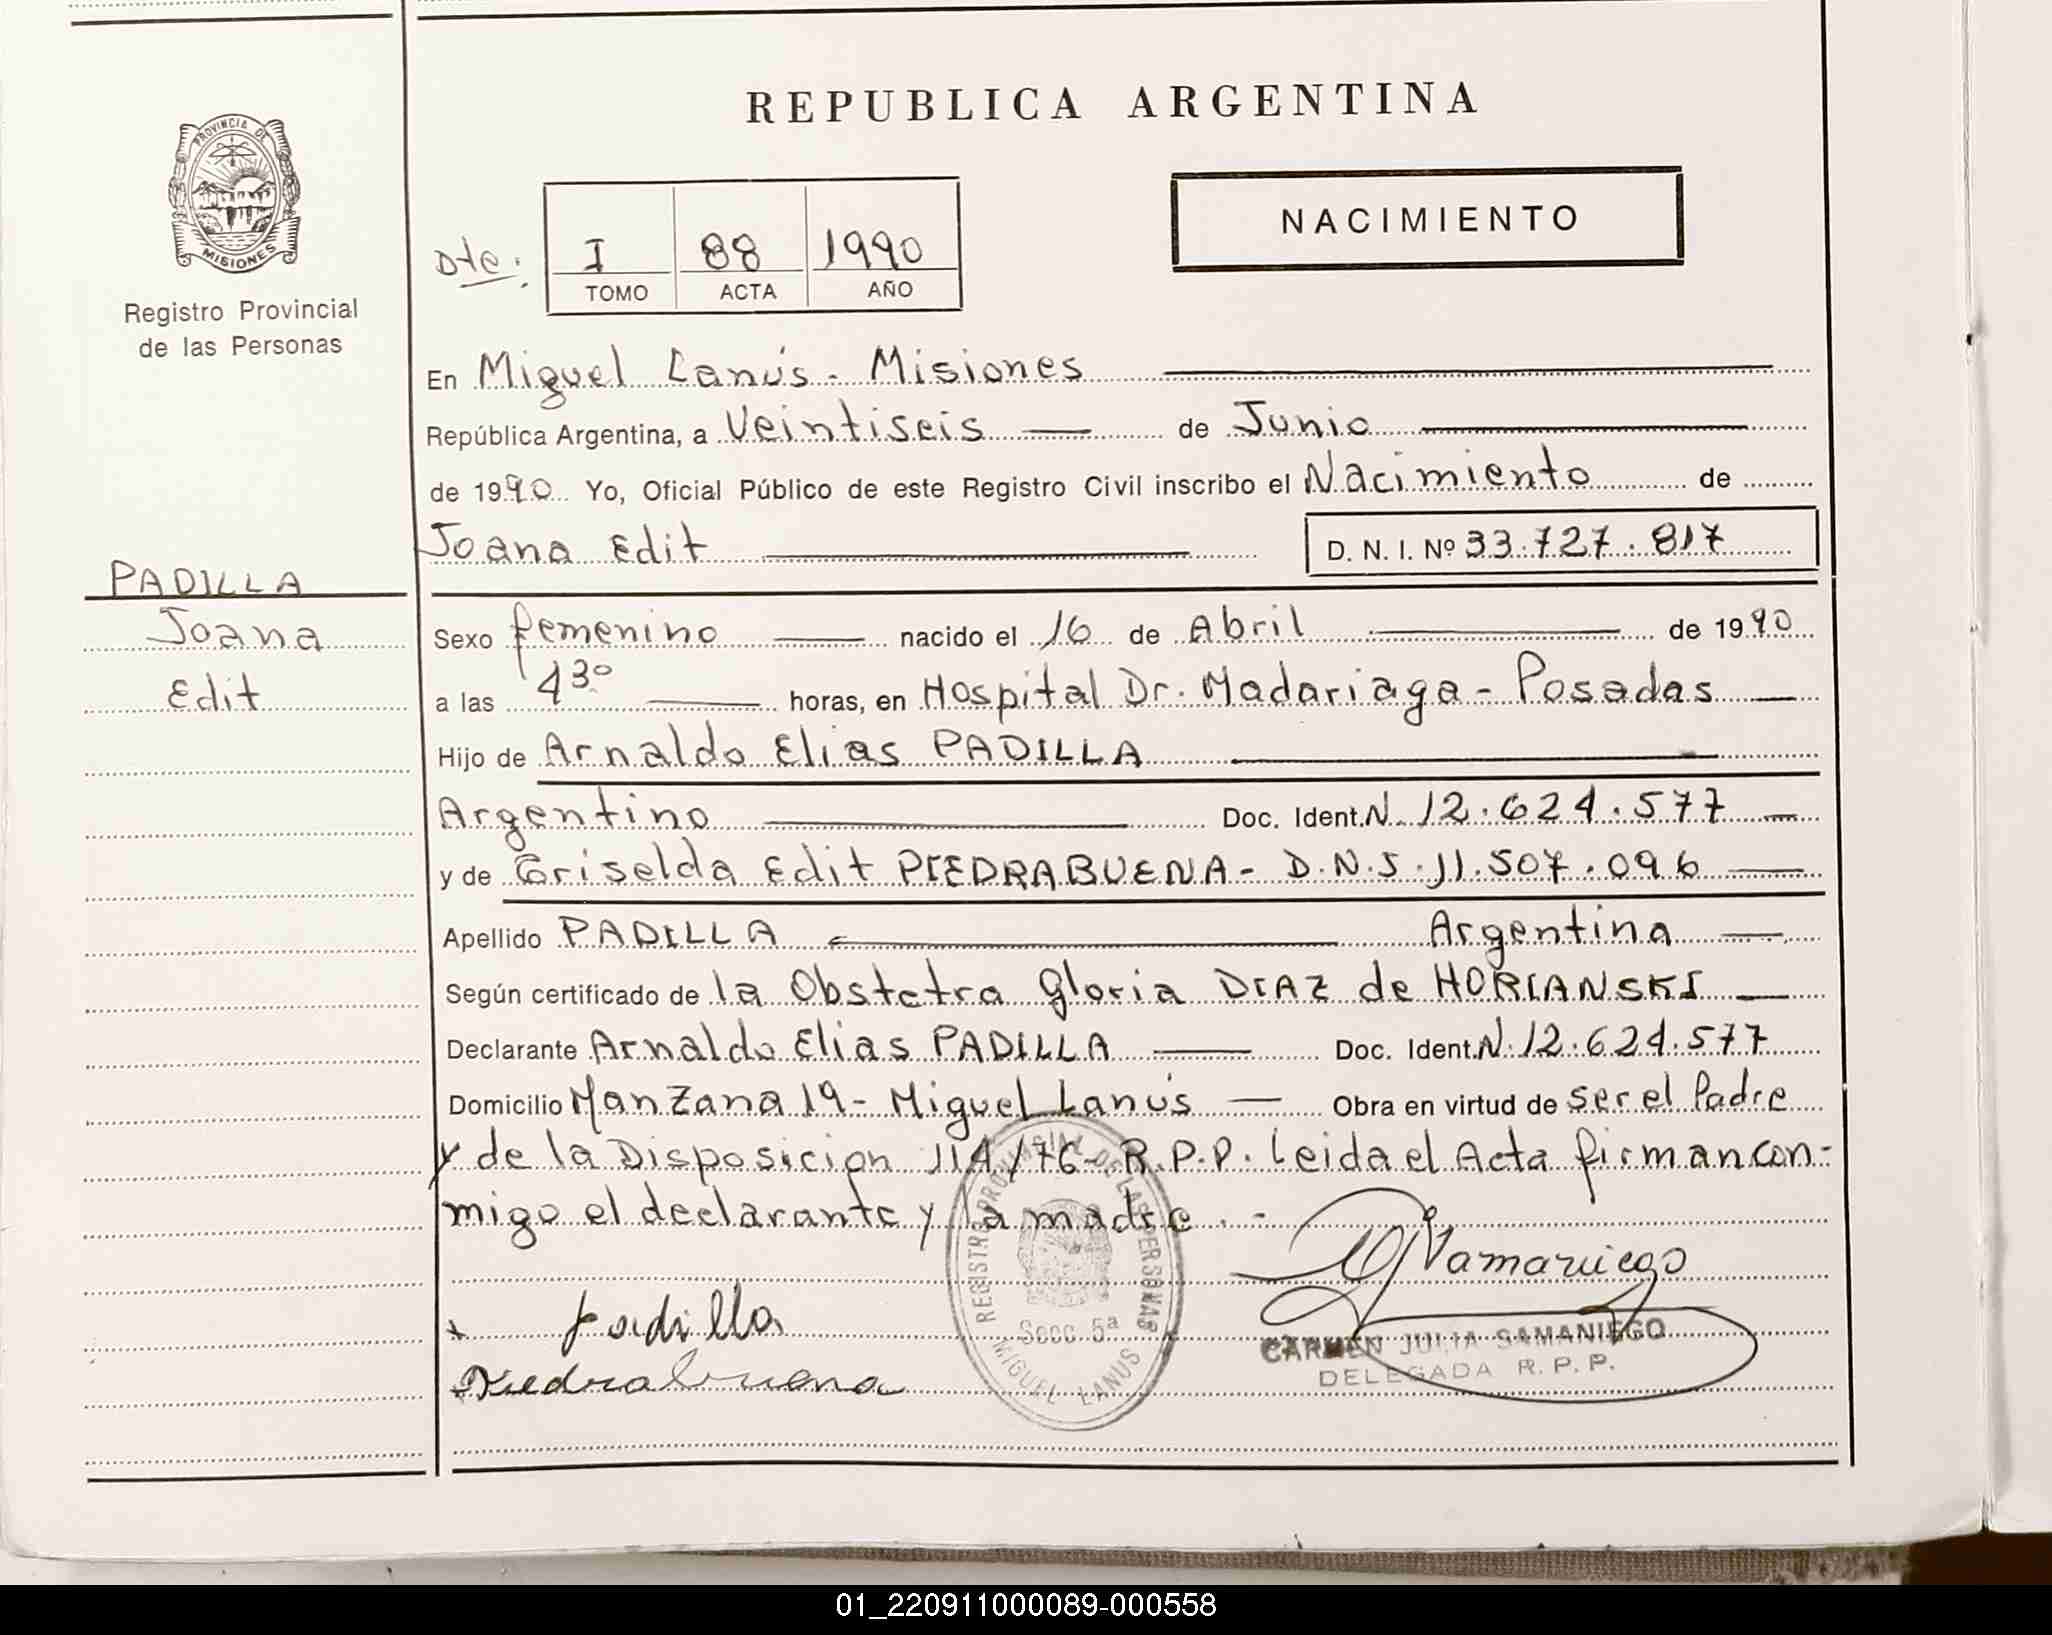 REPUBLICA ARGENTINA
PROVINCIA DE
MISIONES
Registro Provincial
de las Personas
NACIMIENTO
Dte: I 88 1990
TOMO ACTA AÑO
En Miguel Lanús - Misiones
República Argentina, a Veintiseis de Junio
de 1990 Yo, Oficial Público de este Registro Civil inscribo el Nacimiento de
Joana Edit D. N. I. Nº 33.727.817
PADILLA
Joana
Edit
Sexo femenino nacido el 16 de Abril de 1990
a las 4 30 horas, en Hospital Dr. Madariaga - Posadas
Hijo de Arnaldo Elias PADILLA
Argentino Doc. Ident. N. 12.624.577
y de Griselda Edit PIEDRABUENA - D.N.I. 11.507.096
Apellido PADILLA Argentina
Según certificado de la Obstetra Gloria DIAZ de HORIANSKI
Declarante Arnaldo Elias PADILLA Doc. Ident. N. 12.624.577
Domicilio Manzana 19 - Miguel Lanús Obra en virtud de ser el Padre
y de la Disposicion 114/76 - R.P.P. Leida el Acta firman con-
migo el declarante y la madre . -
REGISTRO PROVINCIAL DE LAS PERSONAS
Secc. 5ª
MIGUEL LANUS
Samaniego
Padilla
Piedrabuena
CARMEN JULIA SAMANIEGO
DELEGADA R. P. P.
01_220911000089-000558